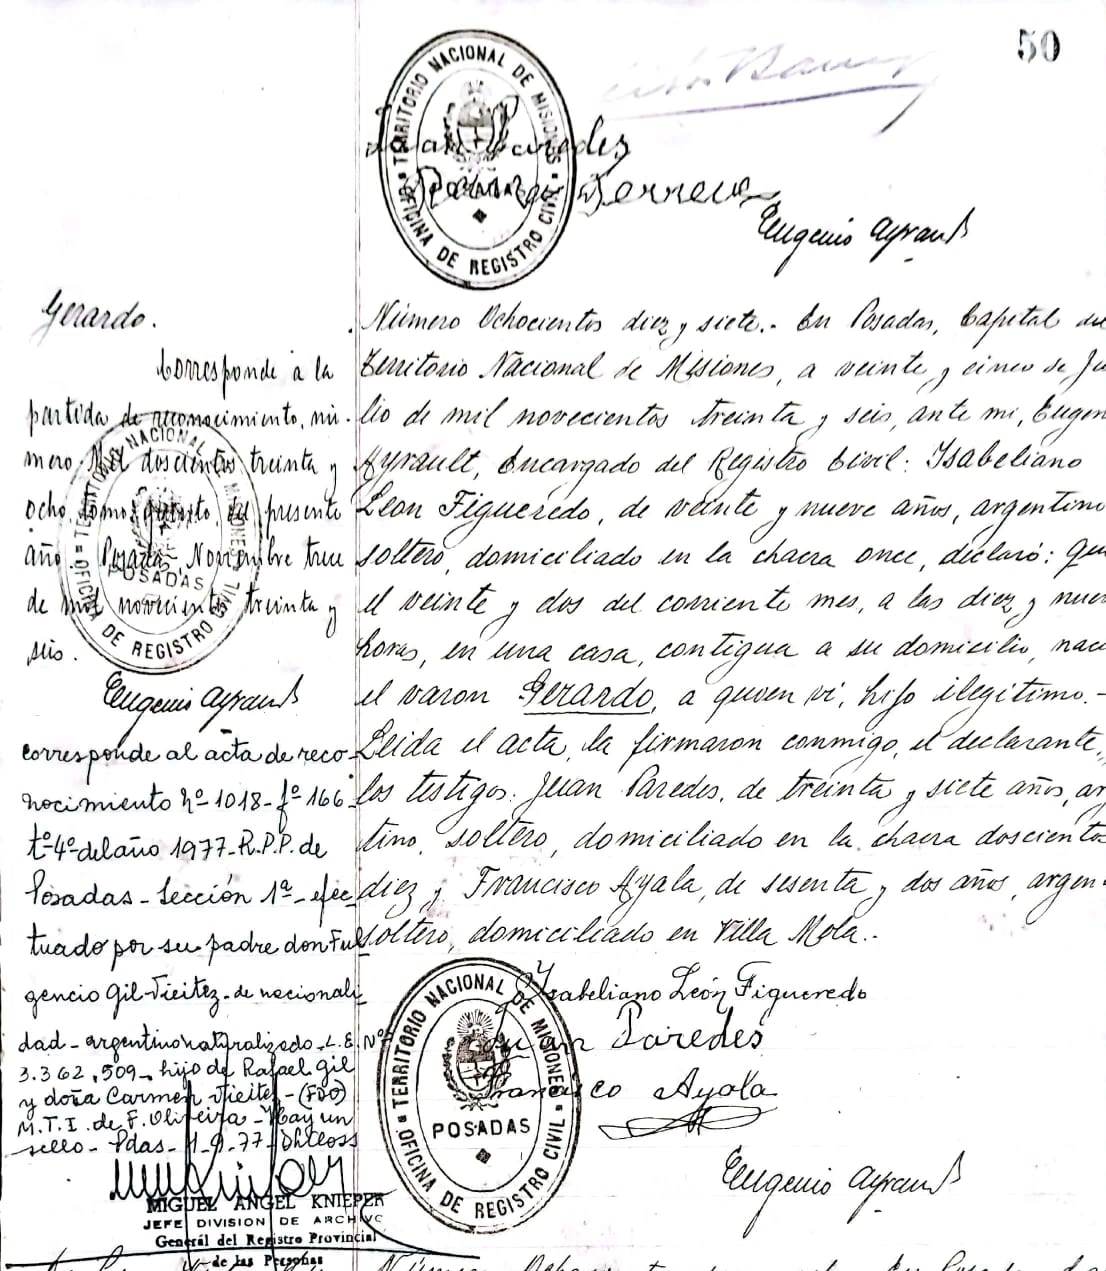 50
TERRITORIO NACIONAL DE MISIONES
OFICINA DE REGISTRO CIVIL
Juan Paredes
Eugenio Ayrault
Gerardo.
Corresponde á la
partida de reconocimiento, nú-
mero Mil doscientos treinta y
ocho, tomo cuarto, del presente
año. Posadas, Noviembre trece
de mil novecientos treinta y
seis.
TERRITORIO NACIONAL DE MISIONES
POSADAS
OFICINA DE REGISTRO CIVIL
Eugenio Ayrault
corresponde al acta de reco-
nocimiento nº 1018-fº 166-
tº 4º del año 1977-R.P.P. de
Posadas-Sección 1ª-efec
tuado por su padre don Ful
gencio Gil-Vieitez-de nacionali
dad-argentino naturalizado-L.E. Nº
3.362,509-hijo de Rafael Gil
y doña Carmen Vieitez-(FDO)
M.T.I. de F. Oliveira-Hay un
sello-Pdas-1-9-77-
MIGUEL ANGEL KNIEPER
JEFE DIVISION DE ARCHIVO
General del Registro Provincial
de las Personas
Número Ochocientos diez y siete.- En Posadas, Capital del
Territorio Nacional de Misiones, a veinte y cinco de Ju
lio de mil novecientos treinta y seis, ante mi, Eugen
Ayrault, Encargado del Registro Civil: Ysabeliano
Leon Figueredo, de veinte y nueve años, argentino
soltero, domiciliado en la chacra once, declaró: que
el veinte y dos del corriente mes, a las diez y nuev
horas, en una casa, contigua a su domicilio, naci
el varon Gerardo, a quien vi, hijo ilegítimo.-
Leida el acta, la firmaron conmigo, el declarante,
los testigos: Juan Paredes, de treinta y siete años, ar
tino, soltero, domiciliado en la chacra doscientos
diez y Francisco Ayala, de sesenta y dos años, argen-
soltero, domiciliado en Villa Mola.-
Ysabeliano León Figueredo
Juan Paredes
Francisco Ayala
TERRITORIO NACIONAL DE MISIONES
POSADAS
OFICINA DE REGISTRO CIVIL
Eugenio Ayrault